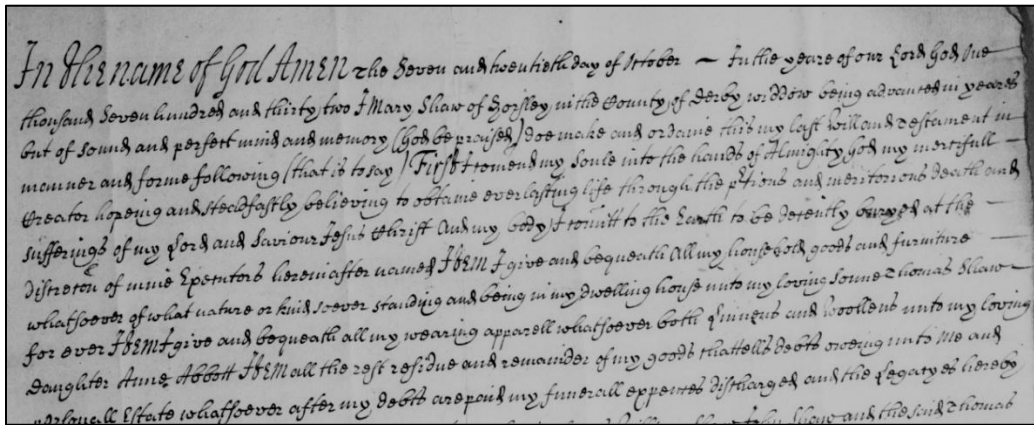 In the name of God Amen The Seven and twentieth day of October — In the yeare of our Lord God One
thousand Seven hundred and thirty two I Mary Shaw of Horsley in the County of Derby widdow being advanced in yeares
but of sound and perfect mind and memory (God be praised) doe make and ordaine this my last Will and Testament in
manner and forme following (that is to say) First I comend my soule into the hands of Almighty God my mercifull
Creator hopeing and steadfastly believing to obtaine everlasting life through the ptious and meritorious death and
sufferings of my Lord and Saviour Jesus Christ And my body I comitt to the Earth to be decently buryed at the
discretcon of mine Executors hereinafter named ITEM I give and bequeath All my household goods and furniture
whatsoever of what nature or kind soever standing and being in my dwelling house unto my loving sonne Thomas Shaw
for ever ITEM I give and bequeath all my wearing apparell whatsoever both Linnens and Woollens unto my loving
daughter Anne Abbott ITEM all the rest residue and remainder of my goods chattells debts oweing unto me and
personall Estate whatsoever after my debts are paid my funerall expences discharged and the Legacyes hereby
Shaw and the said Thomas